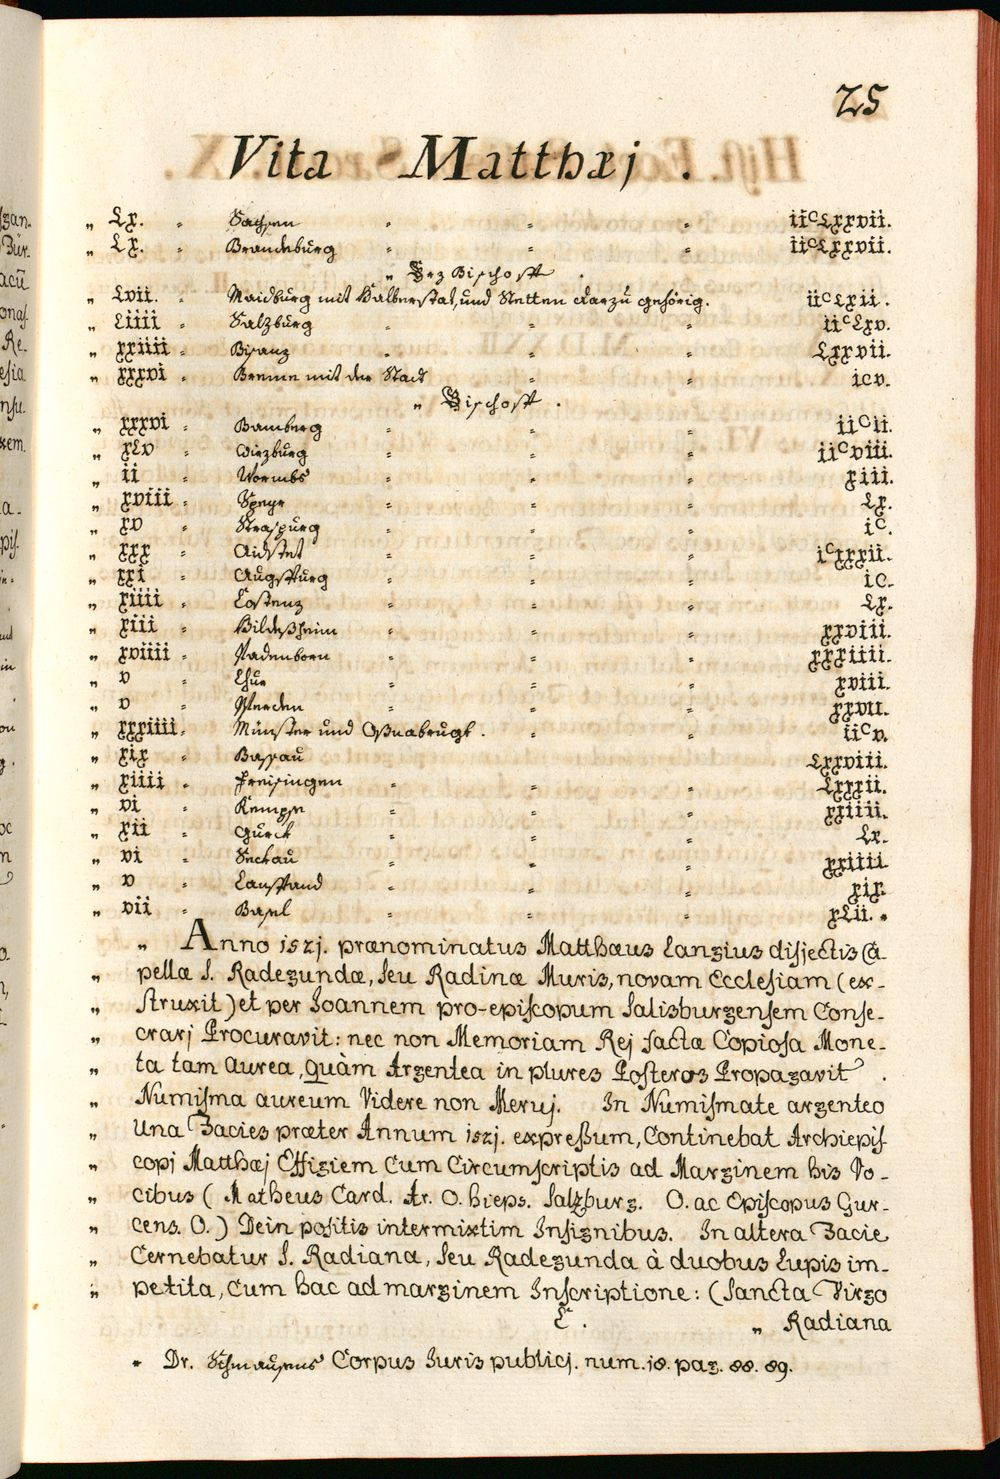 25
Vita Matthæj.
„ Lx. „ Sachsen „ „ „ iiᶜLxxvii.
„ Lx. „ Brandeburg „ „ „ iiᶜLxxvii.
„ Erz Bischoff.
„ Lvii. „ Maidburg mit Halberstat, und Stetten darzu gehörig. iiᶜLxii.
„ Liiii „ Salzburg „ „ „ iiᶜLxv.
„ xxiiii „ Bisanz „ „ „ Lxxvii.
„ xxxvi „ Breme mit der Stadt „ „ icv.
„ Bischoff.
„ xxxvi „ Bamberg „ „ „ iiᶜii.
„ xLv „ Wirzburg „ „ „ iiᶜviii.
„ ii „ Wormbs „ „ „ xiii.
„ xviii „ Speyr „ „ „ Lx.
„ xv „ Straspurg „ „ „ iᶜ.
„ xxx „ Aidstet „ „ „ iᶜxxxii.
„ xxi „ Augspurg „ „ „ ic.
„ xiiii „ Costenz „ „ „ Lx.
„ xiii „ Hildeßheim „ „ „ xxviii.
„ xviiii „ Padenborn „ „ „ xxxiiii.
„ v „ Chur „ „ „ xviii.
„ v „ Werden „ „ „ xxvii.
„ xxxiiii „ Münster und Oßnabrugk. „ „ iiᶜv.
„ xix „ Bassau „ „ „ Lxxviii.
„ xiiii „ Freisingen „ „ „ Lxxxii.
„ vi „ Kempse „ „ „ xxiiii.
„ xii „ Gurck „ „ „ Lx.
„ vi „ Seckau „ „ „ xxiiii.
„ v „ Lauffand „ „ „ xix.
„ vii „ Basel „ „ „ xLii. *
„ Anno 152j. prænominatus Matthæus Langius disjectis Ca
„ pellæ S. Radegundæ, seu Radinæ Muris, novam Ecclesiam (ex-
„ struxit) et per Joannem pro-episcopum Salisburgensem Conse-
„ crarj Procuravit: nec non Memoriam Rej factæ Copiosa Mone-
„ ta tam aurea, quàm Argentea in plures Posteros Propagavit.
„ Numisma aureum Videre non Meruj. In Numismate argenteo
„ una Facies præter Annum 152j. expreßum, Continebat Archiepis-
„ copj Matthæj Effigiem Cum Circumscriptis ad Marginem his Vo-
„ cibus ( Matheus Card. Ar. O. hieps. Salzburg. O. ac Episcopus Gur-
„ cens. O.) Dein positis intermixtim Insignibus. In altera Facie
„ Cernebatur S. Radiana, seu Radegunda à duobus Lupis im-
„ petita, Cum hac ad marginem Inscriptione: (Sancta Virgo
„ Radiana
* Dr. Schmausens Corpus Juris publicj. num. 18. pag. 88. 89.